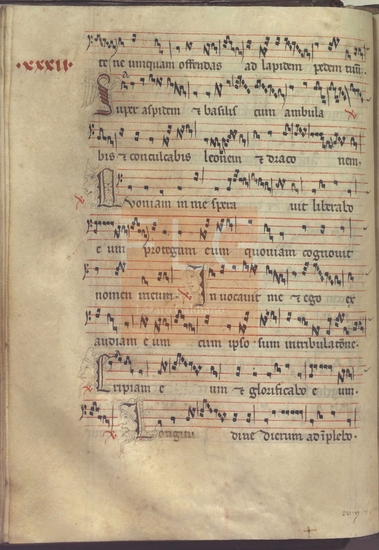 ·xxxii·
te ne unquam offendas ad lapidem pedem tuum.
Super aspidem & basilis cum ambula
bis & conculcabis leonem & draco nem.
Quoniam in me spera uit liberabo
e um protegam eum quoniam cognouit
nomen meum. Inuocauit me & ego ex
audiam e um cum ipso sum in tribulatione.
Eripiam e um & glorificabo e um.
Longitu dine dierum adimplebo.